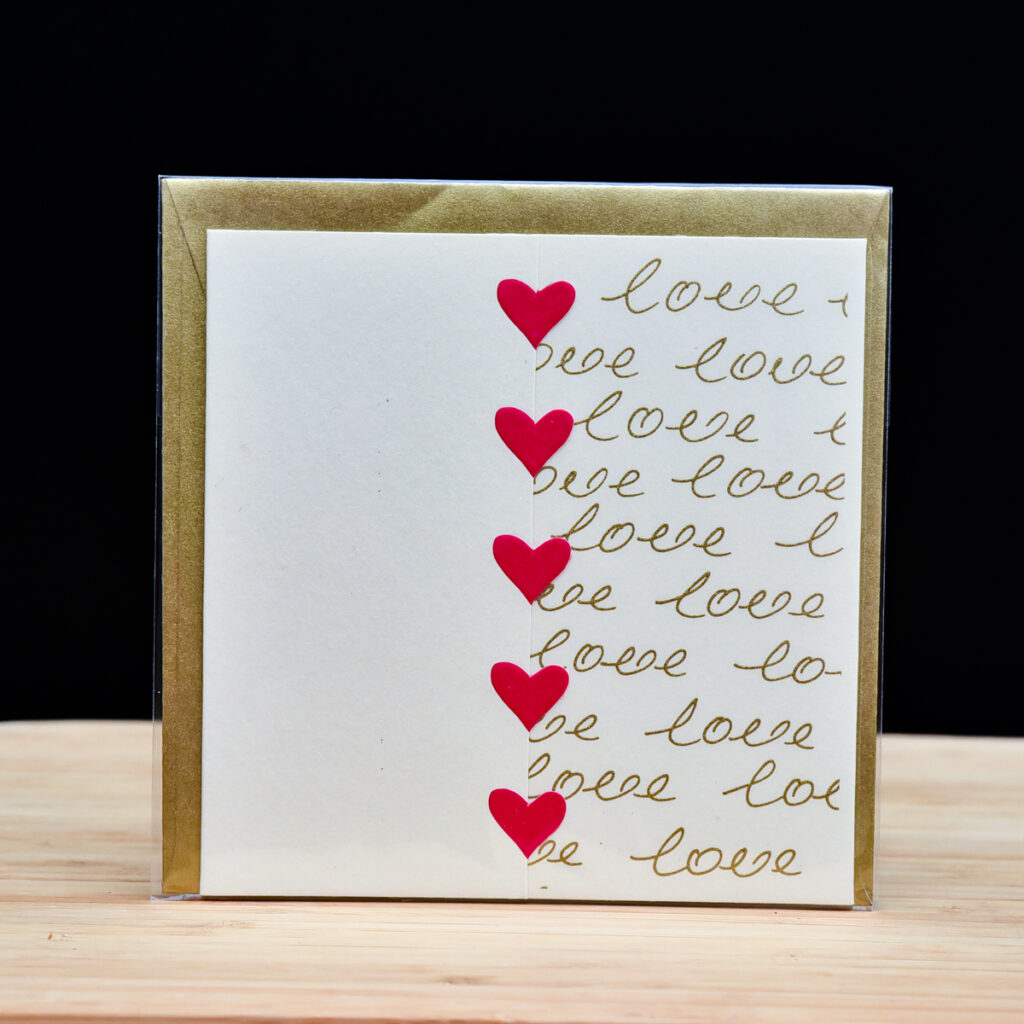 love
ove love
love
ove love
love l
ve love
love lo
ve love
love lov
ve love